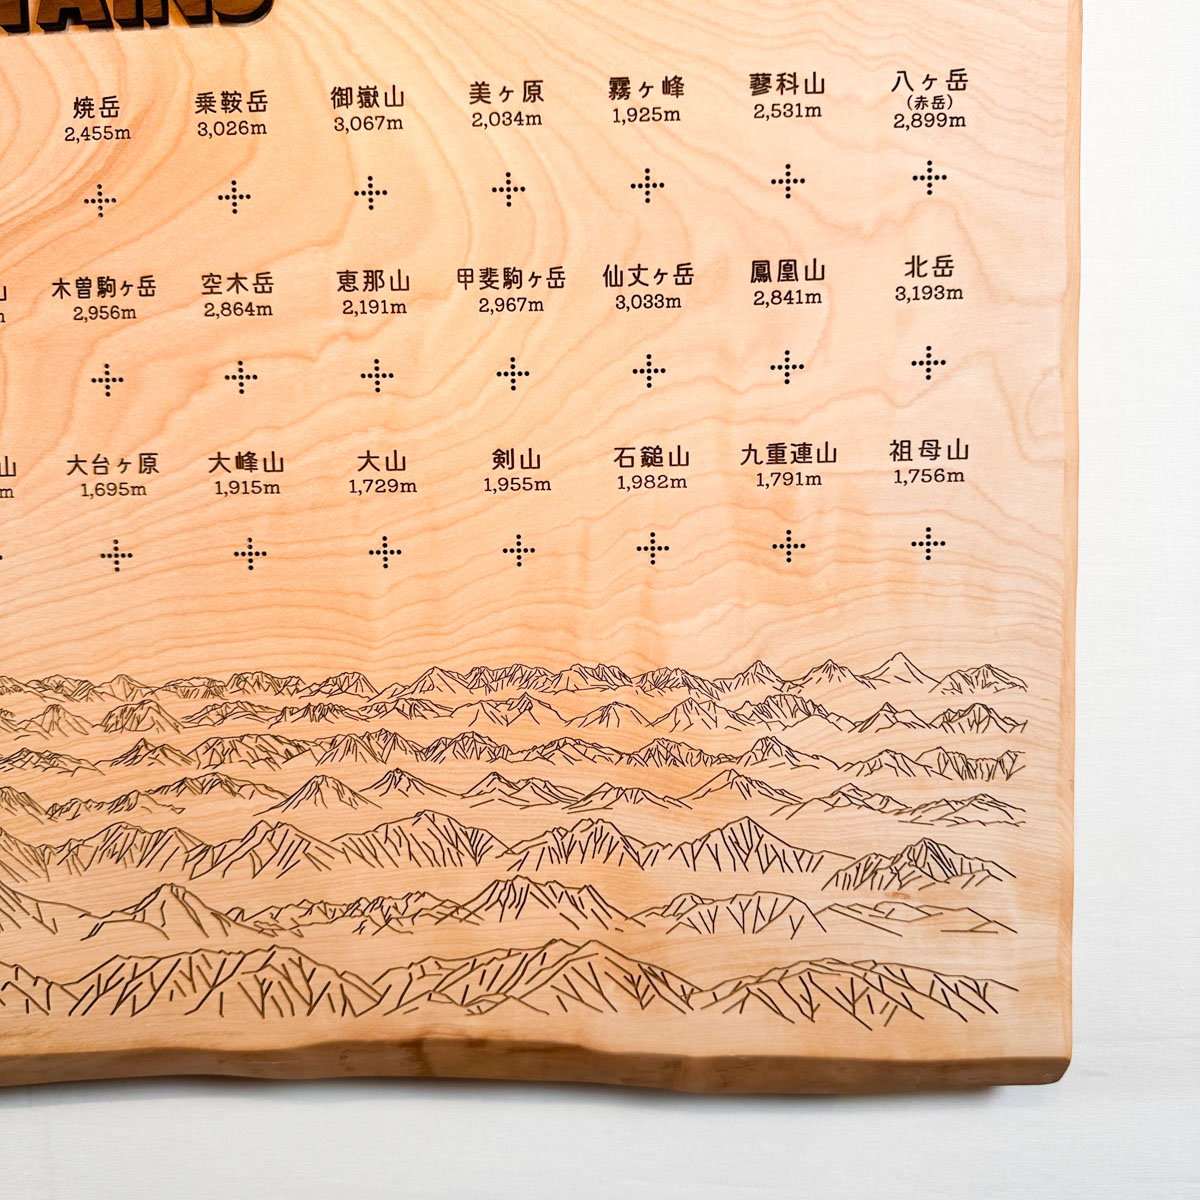 焼岳 乗鞍岳 御嶽山 美ヶ原 霧ヶ峰 蓼科山 八ヶ岳
(赤岳)
2,455m 3,026m 3,067m 2,034m 1,925m 2,531m 2,899m
山 木曽駒ヶ岳 空木岳 恵那山 甲斐駒ヶ岳 仙丈ヶ岳 鳳凰山 北岳
m 2,956m 2,864m 2,191m 2,967m 3,033m 2,841m 3,193m
山 大台ヶ原 大峰山 大山 剣山 石鎚山 九重連山 祖母山
m 1,695m 1,915m 1,729m 1,955m 1,982m 1,791m 1,756m